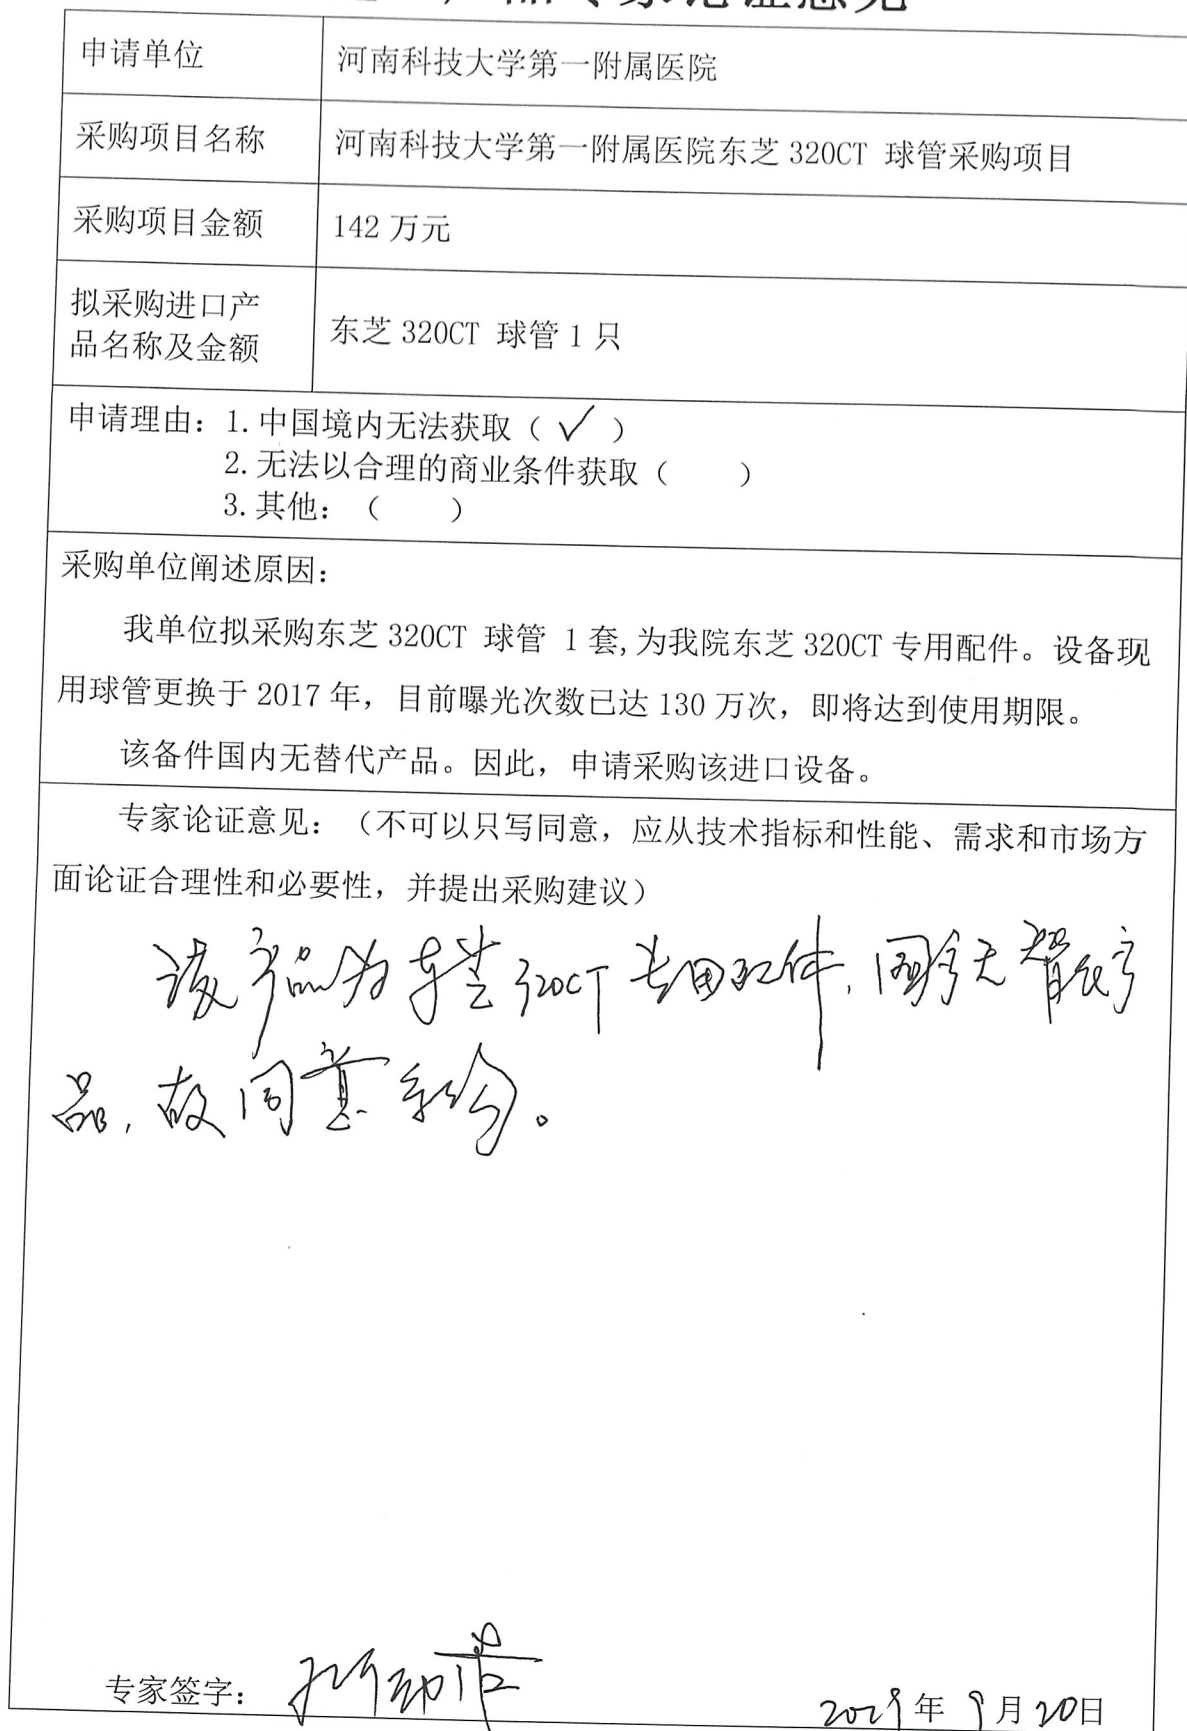 专家论证意见
申请单位 河南科技大学第一附属医院
采购项目名称 河南科技大学第一附属医院东芝 320CT 球管采购项目
采购项目金额 142 万元
拟采购进口产
品名称及金额 东芝 320CT 球管 1 只
申请理由：1.中国境内无法获取（ ✓ ）
2.无法以合理的商业条件获取（ ）
3.其他：（ ）
采购单位阐述原因：
我单位拟采购东芝 320CT 球管 1 套,为我院东芝 320CT 专用配件。设备现
用球管更换于 2017 年，目前曝光次数已达 130 万次，即将达到使用期限。
该备件国内无替代产品。因此，申请采购该进口设备。
专家论证意见：（不可以只写同意，应从技术指标和性能、需求和市场方
面论证合理性和必要性，并提出采购建议）
该产品为东芝320CT专用配件，国内无替代产
品，故同意采购。
专家签字：
年 9 月 20 日